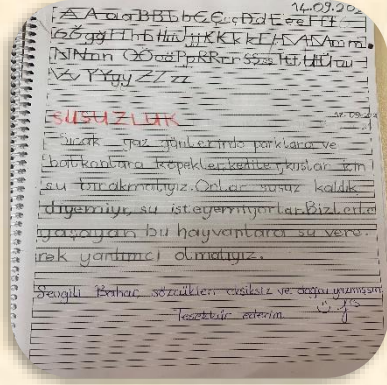 14.09.202
A A a a B B b b C C c ç D d E e e F f f
G Ğ g ğ H h I ı İ i J j K K k k L l M M m m
N N n n O Ö o ö P p R R r r S Ş s ş T t U Ü u ü
V v Y Y y y Z Z z z
SUSUZLUK
Sıcak yaz günlerinde parklara ve
balkonlara köpekler, kediler, kuşlar için
su bırakmalıyız. Onlar susuz kaldık
diyemiyor, su isteyemiyorlar. Bizlerle
yaşayan bu hayvanlara su vere
rek yardımcı olmalıyız.
Sevgili Bahar, sözcükleri eksiksiz ve doğru yazmışsın
Teşekkür ederim